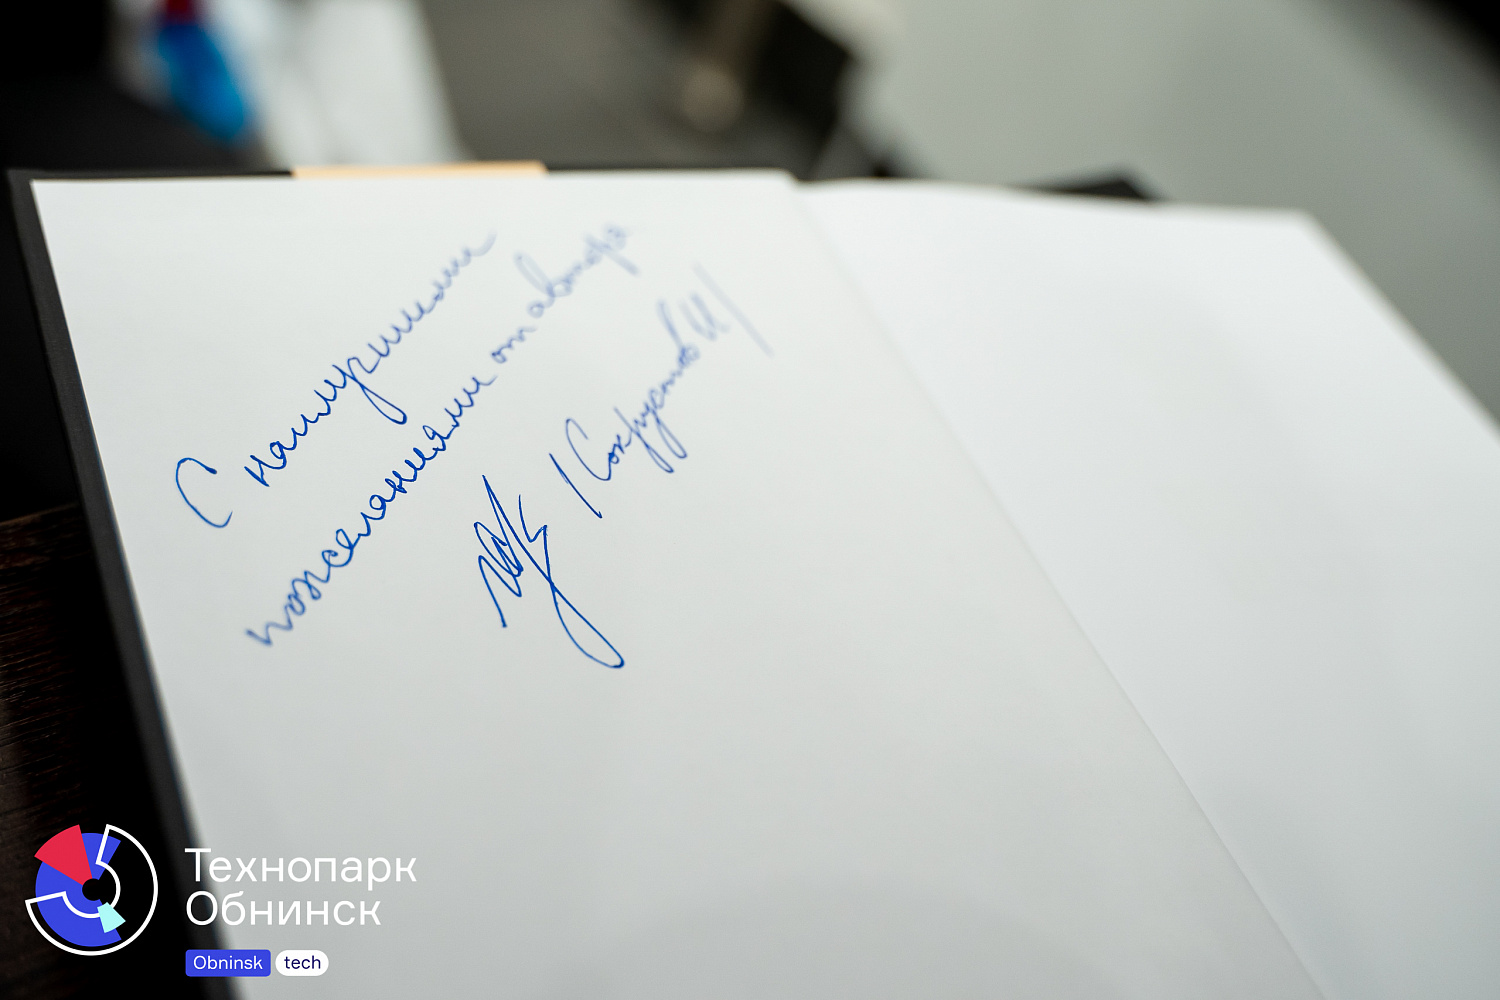 С наилучшими
пожеланиями от автора
/Сокрустов И/
Технопарк
Обнинск
Obninsk tech